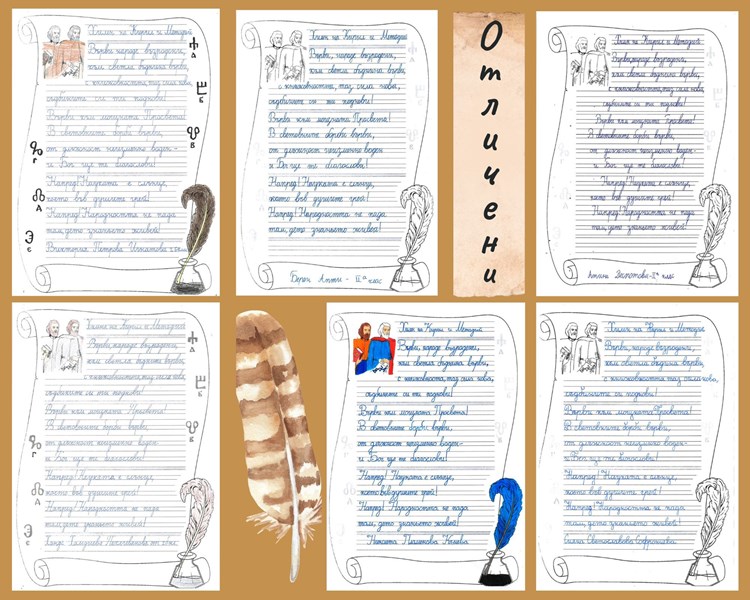 Химн на Кирил и Методий
Върви, народе възродени,
към светла бъднина върви,
с книжовността, таз сила нова,
съдбините си ти поднови!
Върви към мощната Просвета!
В световните борби върви,
от длъжност неизменно воден -
и Бог ще те благослови!
Напред! Науката е слънце,
което във душите грей!
Напред! Народността не пада
там, дето знаньето живей!
Виктория Петрова
Химн на Кирил и Методий
Върви, народе възродени,
към светла бъднина върви,
с книжовността, таз сила нова,
съдбините си ти поднови!
Върви към мощната Просвета!
В световните борби върви,
от длъжност неизменно воден
и Бог ще те благослови!
Напред! Науката е слънце,
което във душите грей!
Напред! Народността не пада
там, дето знаньето живей!
клас
Отличени
Химн на Кирил и Методий
Върви, народе възродени,
към светла бъднина върви,
с книжовността, таз сила нова,
съдбините си ти поднови!
Върви към мощната Просвета!
В световните борби върви,
от длъжност неизменно воден
и Бог ще те благослови!
Напред! Науката е слънце,
което във душите грей!
Напред! Народността не пада
там, дето знаньето живей!
клас
Химн на Кирил и Методий
Върви, народе възродени,
към светла бъднина върви,
с книжовността, таз сила нова,
съдбините си ти поднови!
Върви към мощната Просвета!
В световните борби върви,
от длъжност неизменно воден -
и Бог ще те благослови!
Напред! Науката е слънце,
което във душите грей!
Напред! Народността не пада
там, дето знаньето живей!
Химн на Кирил и Методий
Върви, народе възродени,
към светла бъднина върви,
с книжовността, таз сила нова,
съдбините си ти поднови!
Върви към мощната Просвета!
В световните борби върви,
от длъжност неизменно воден -
и Бог ще те благослови!
Напред! Науката е слънце,
което във душите грей!
Напред! Народността не пада
там, дето знаньето живей!
Химн на Кирил и Методий
Върви, народе възродени,
към светла бъднина върви,
с книжовността, таз сила нова,
съдбините си ти поднови!
Върви към мощната Просвета!
В световните борби върви,
от длъжност неизменно воден
и Бог ще те благослови!
Напред! Науката е слънце,
което във душите грей!
Напред! Народността не пада
там, дето знаньето живей!